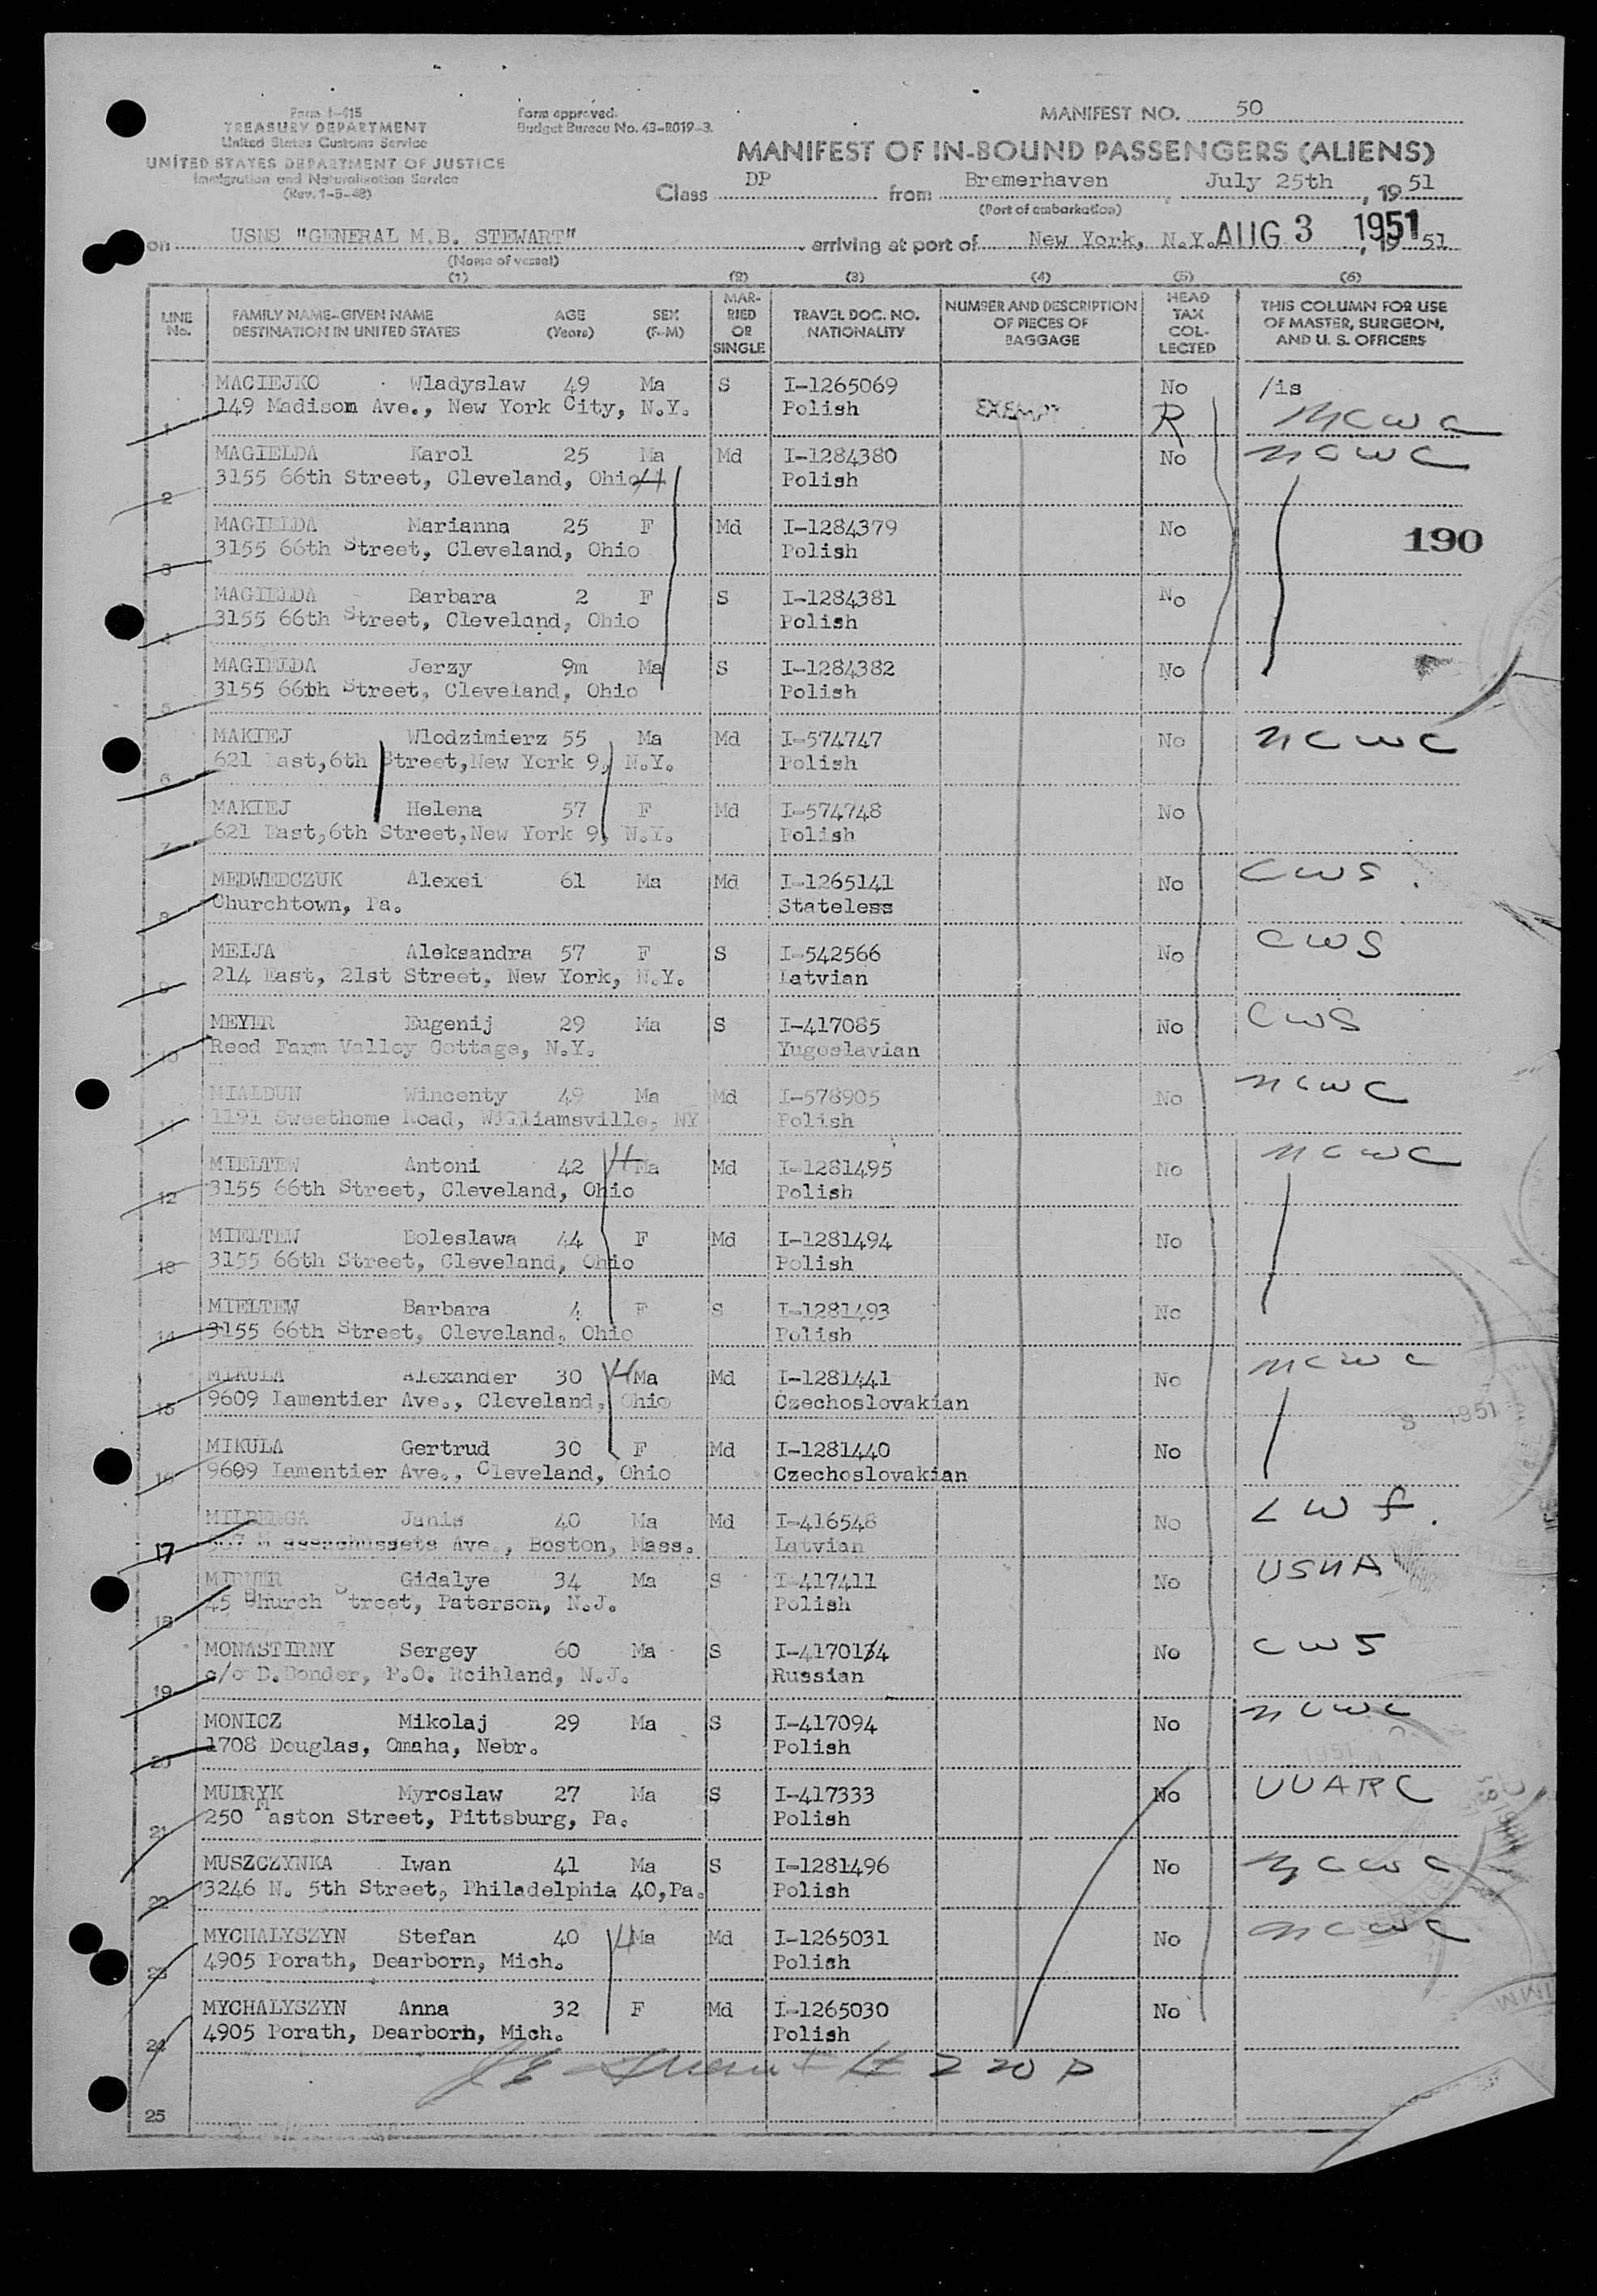 Form I-415
TREASURY DEPARTMENT
United States Customs Service
UNITED STATES DEPARTMENT OF JUSTICE
Immigration and Naturalization Service
(Rev. 1-5-48)
Form approved.
Budget Bureau No. 43-R019-3.
MANIFEST NO. 50
MANIFEST OF IN-BOUND PASSENGERS (ALIENS)
Class DP from Bremerhaven, July 25th, 1951
(Port of embarkation)
on USNS "GENERAL M.B. STEWART" arriving at port of New York, N.Y. AUG 3 1951, 1951
(Name of vessel)
(1) (2) (3) (4) (5) (6)
LINE No. FAMILY NAME-GIVEN NAME DESTINATION IN UNITED STATES AGE (Years) SEX (F-M) MARRIED OR SINGLE TRAVEL DOC. NO. NATIONALITY NUMBER AND DESCRIPTION OF PIECES OF BAGGAGE HEAD TAX COLLECTED THIS COLUMN FOR USE OF MASTER, SURGEON, AND U. S. OFFICERS
MACIEJKO Wladyslaw 49 Ma S I-1265069 No /is
1 149 Madison Ave., New York City, N.Y. Polish EXEMPT R NCWC
MAGIELDA Karol 25 Ma Md I-1284380 No NCWC
2 3155 66th Street, Cleveland, Ohio 4 Polish
MAGIELDA Marianna 25 F Md I-1284379 No 190
3 3155 66th Street, Cleveland, Ohio Polish
MAGIELDA Barbara 2 F S I-1284381 No
4 3155 66th Street, Cleveland, Ohio Polish
MAGIELDA Jerzy 9m Ma S I-1284382 No
5 3155 66th Street, Cleveland, Ohio Polish
MAKIEJ Wlodzimierz 55 Ma Md I-574747 No NCWC
6 621 East,6th Street,New York 9, N.Y. Polish
MAKIEJ Helena 57 F Md I-574748 No
7 621 East,6th Street,New York 9, N.Y. Polish
MEDWEDCZUK Alexei 61 Ma Md I-1265141 No CWS.
8 Churchtown, Pa. Stateless
MEIJA Aleksandra 57 F S I-542566 No CWS
9 214 East, 21st Street, New York, N.Y. Latvian
MEYER Eugenij 29 Ma S I-417085 No CWS
10 Reed Farm Valley Cottage, N.Y. Yugoslavian
MIALDUN Wincenty 49 Ma Md I-578905 No NCWC
11 1191 Sweethome Road, Williamsville, NY Polish
MIELTEW Antoni 42 4 Ma Md I-1281495 No NCWC
12 3155 66th Street, Cleveland, Ohio Polish
MIELTEW Boleslawa 44 F Md I-1281494 No
13 3155 66th Street, Cleveland, Ohio Polish
MIELTEW Barbara 4 F S I-1281493 No
14 3155 66th Street, Cleveland, Ohio Polish
MIKULA Alexander 30 4 Ma Md I-1281441 No NCWC
15 9609 Lamentier Ave., Cleveland, Ohio Czechoslovakian
MIKULA Gertrud 30 F Md I-1281440 No
16 9609 Lamentier Ave., Cleveland, Ohio Czechoslovakian
MILBERGA Janis 40 Ma Md I-416548 No LWF.
17 Massachussets Ave., Boston, Mass. Latvian
Gidalye 34 Ma S I-417411 No USNA
18 45 Church Street, Paterson, N.J. Polish
MONASTIRNY Sergey 60 Ma S I-417014 No CWS
19 c/o D.Donder, P.O. Reihland, N.J. Russian
MONICZ Mikolaj 29 Ma S I-417094 No NCWC
20 1708 Douglas, Omaha, Nebr. Polish
MUDRYK Myroslaw 27 Ma S I-417333 No UUARC
21 250 Maston Street, Pittsburg, Pa. Polish
MUSZCZYNKA Iwan 41 Ma S I-1281496 No NCWC
22 3246 N. 5th Street, Philadelphia 40,Pa. Polish
MYCHALYSZYN Stefan 40 4 Ma Md I-1265031 No NCWC
23 4905 Porath, Dearborn, Mich. Polish
MYCHALYSZYN Anna 32 F Md I-1265030 No
24 4905 Porath, Dearborn, Mich. Polish
220 P
25